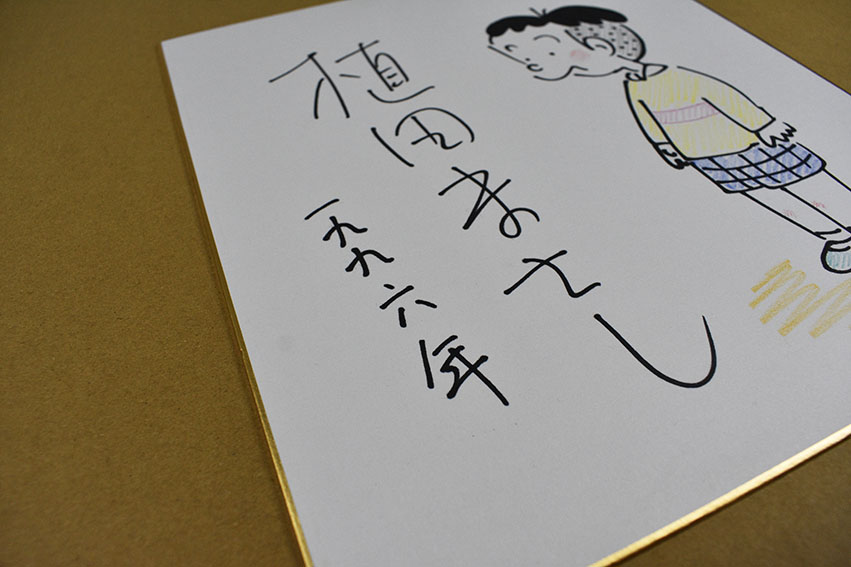 植田まさし
一九九六年